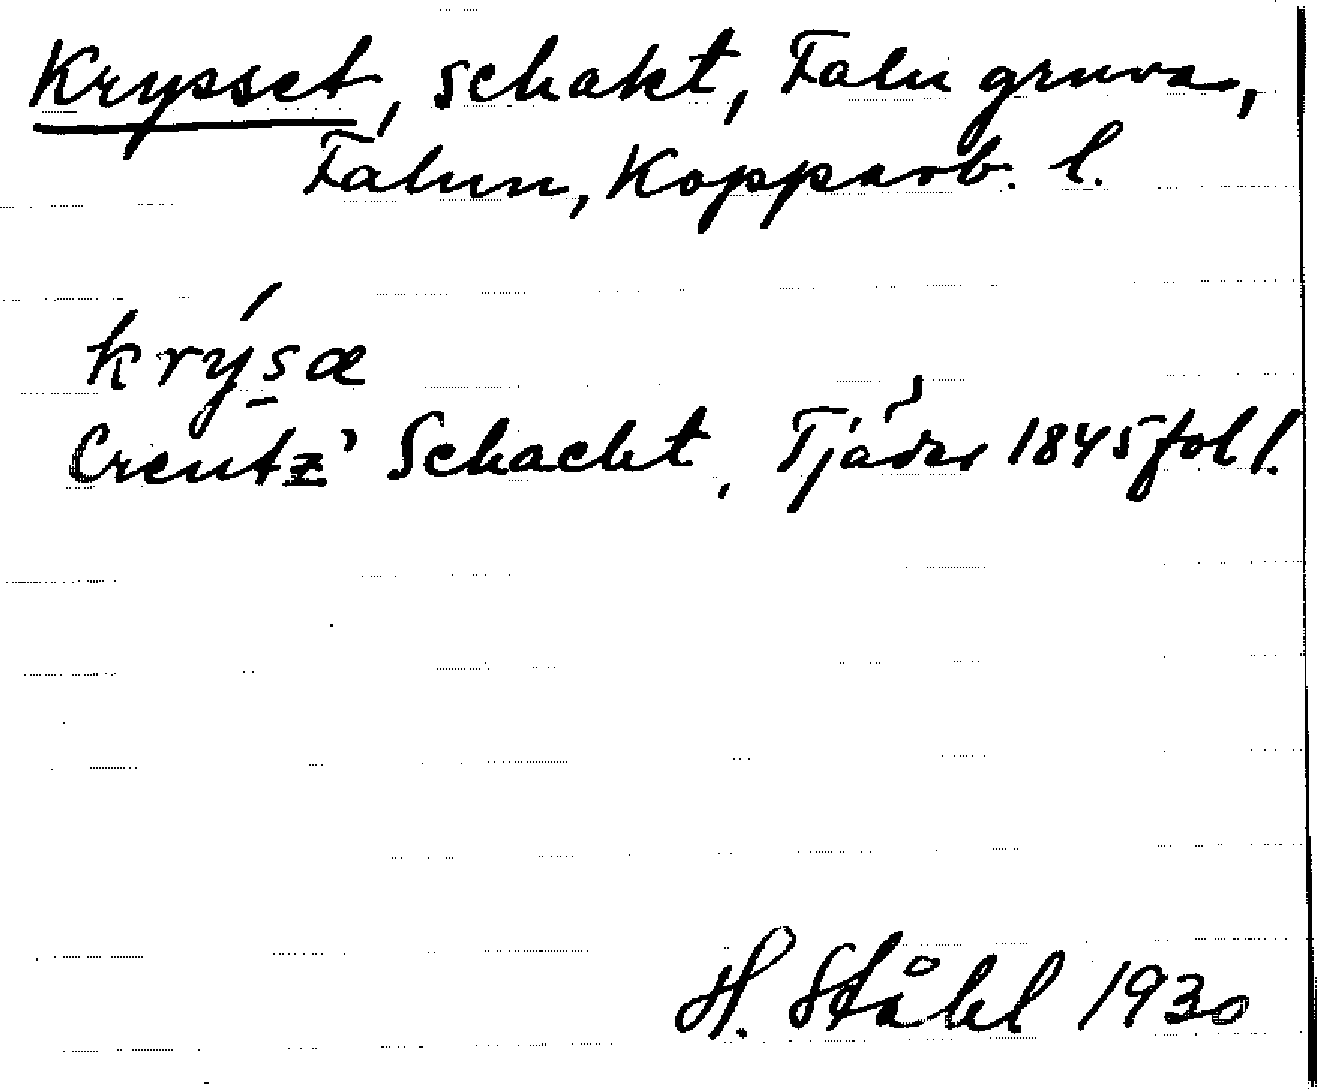 Krysset, schakt, Falu gruva,
Falun, Kopparb. l.
krýsæ
Creutz' Schacht, Tjäder 1845 fol 1.
H. Ståhl 1930